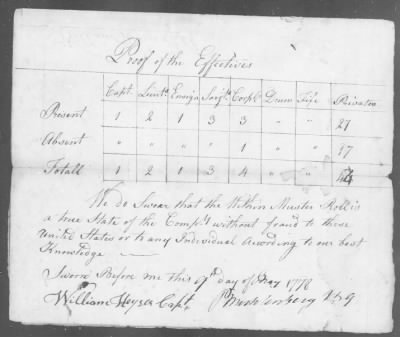 Proof of the Effectives
Capt. Lieuts. Ensign Sarjts. Corpls. Drum Fife Privates
Present 1 2 1 3 3 " " 27
Absent " " " " 1 " " 17
Totall 1 2 1 3 4 " " 44
We do Swear that the Within Muster Roll is
a true State of the Compy without fraud to these
United States or to any Individual According to our best
Knowledge
Sworn Before me this 9th day of May 1778
William Heyser Capt. P Muhlenberg B G